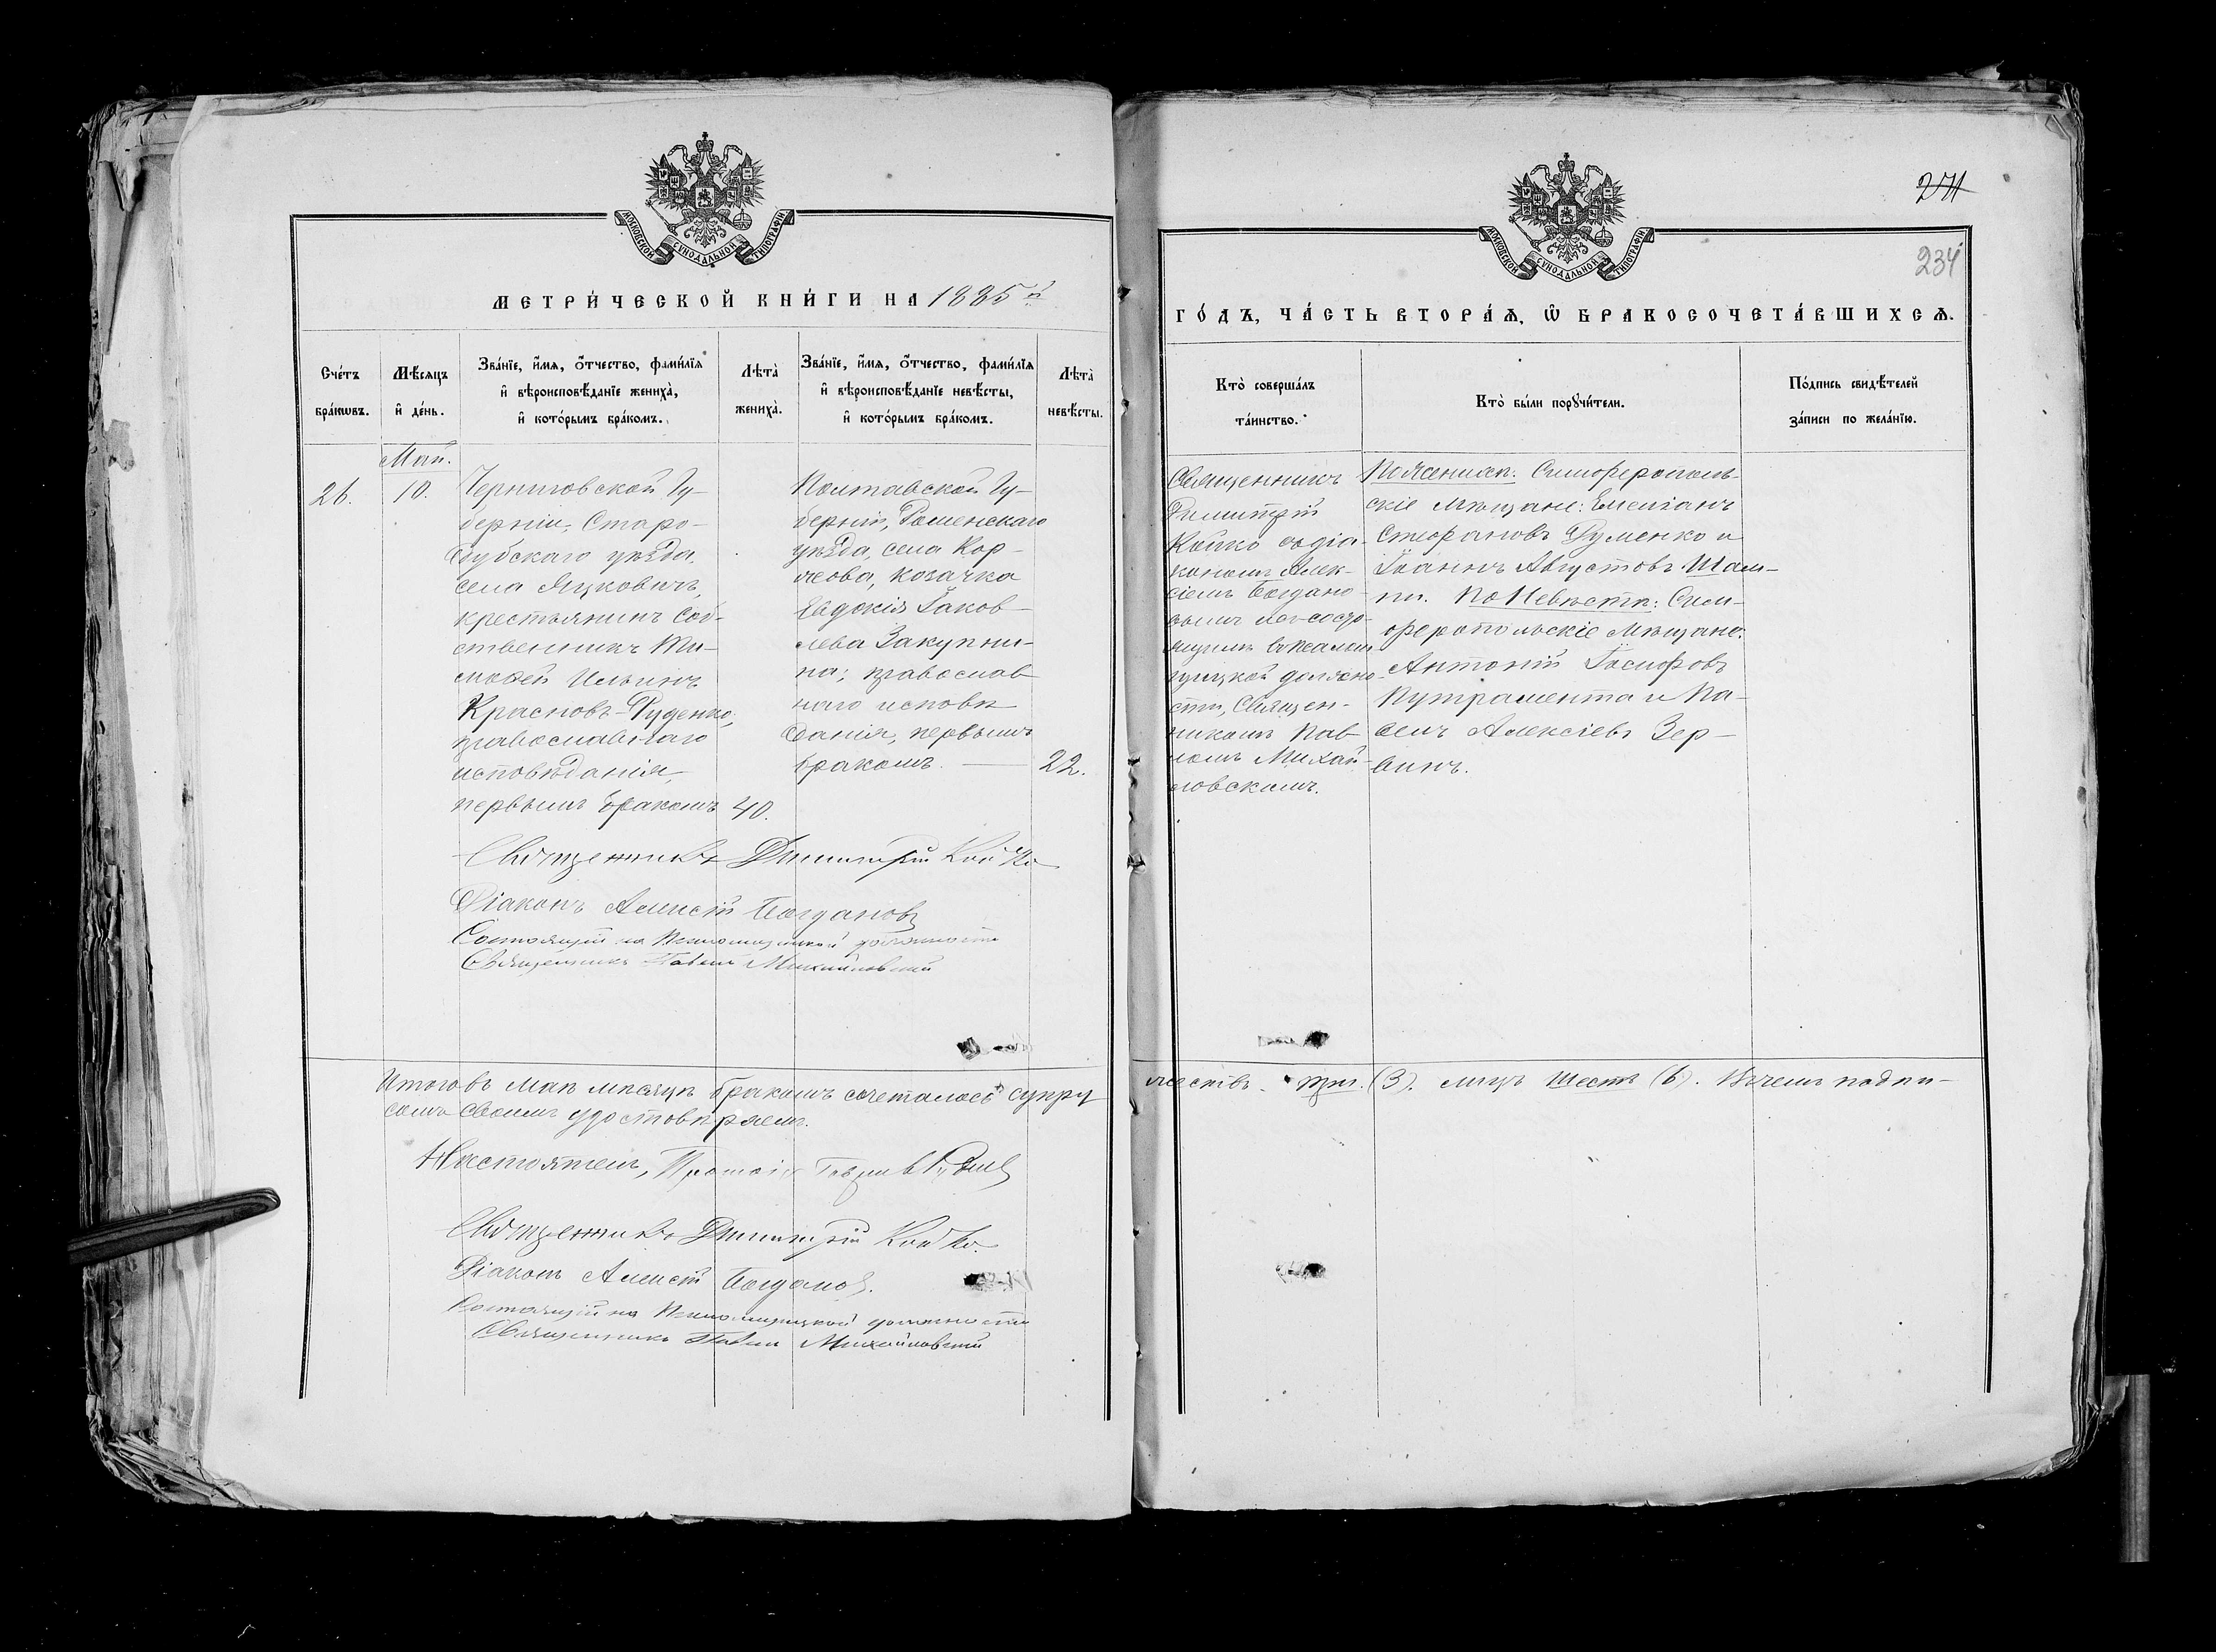 МОСКОВСКОЙ СУНОДАЛЬНОЙ ТИПОГРАФІИ
МЕТРИ́ЧЕСКОЙ КНИ́ГИ НА 1885 й
Сче́тъ бра́кѡвъ.
Мѣ́сяцъ и҆ де́нь.
Зва́нїе, и҆́мѧ, о҆́тчество, фами́лїѧ
и҆ вѣроисповѣ́данїе жениха̀,
и҆ кото́рымъ бра́комъ.
Лѣта̀ жениха̀.
Зва́нїе, и҆́мѧ, о҆́тчество, фами́лїѧ
и҆ вѣроисповѣ́данїе невѣ́сты,
и҆ кото́рымъ бра́комъ.
Лѣта̀ невѣ́сты.
Май.
26.
10.
Черниговской Гу-
берніи, Старо-
дубскаго уѣзда,
села Яцковичъ,
крестьянинъ соб-
ственникъ Ти-
мофей Ильинъ
Красновъ-Руденко,
православнаго
исповѣданія,
первымъ бракомъ
40.
Полтавской Гу-
берніи, Роменскаго
уѣзда, села Кор-
чеова, козачка
Евдокія Іаков-
лева Закупни-
на; православ
наго исповѣ
данія, первымъ
бракомъ.
22.
Священникъ Димитрій Койко
Діаконъ Алексій Богдановъ
Состоящій на Псаломщицкой должности
Священникъ Павелъ Михайловскій
Итого въ маѣ мѣсяцѣ бракомъ сочеталось супру
сомъ своимъ удостовѣряемъ.
Настоятель, Протоіе
Священникъ Димитрій Койко.
Діаконъ Алексій Богдановъ.
Состоящій на Псаломщицкой должности
Священникъ Павелъ Михайловскій
271
234
МОСКОВСКОЙ СУНОДАЛЬНОЙ ТИПОГРАФІИ
ГО́ДЪ, ЧА́СТЬ ВТОРА́Ѧ, Ѽ БРАКОСОЧЕТА́ВШИХСѦ.
Кто̀ соверша́лъ
та́инство.
Кто̀ бы́ли порꙋчи́тели.
По́дпись свидѣ́телей
за́писи по жела́нїю.
Священникъ
Димитрій
Койко съ діа-
кономъ Алек-
сіемъ Богдано-
вымъ и состо-
ящимъ въ псалом
щицкой должно-
сти, Священ-
никомъ Пав-
ломъ Михай-
ловскимъ.
По женихѣ: Симферополь-
скіе мѣщане: Емеліанъ
Стефановъ Думенко и
Іоаннъ Августовъ Шам-
пи. По Невѣстѣ: Сим-
феропольскіе мѣщане:
Антоній Іосифовъ
Путрамента и Па-
велъ Алексіевъ Зер-
винъ.
жествъ три. (3). лицъ шесть (6). Въ чемъ подпи-